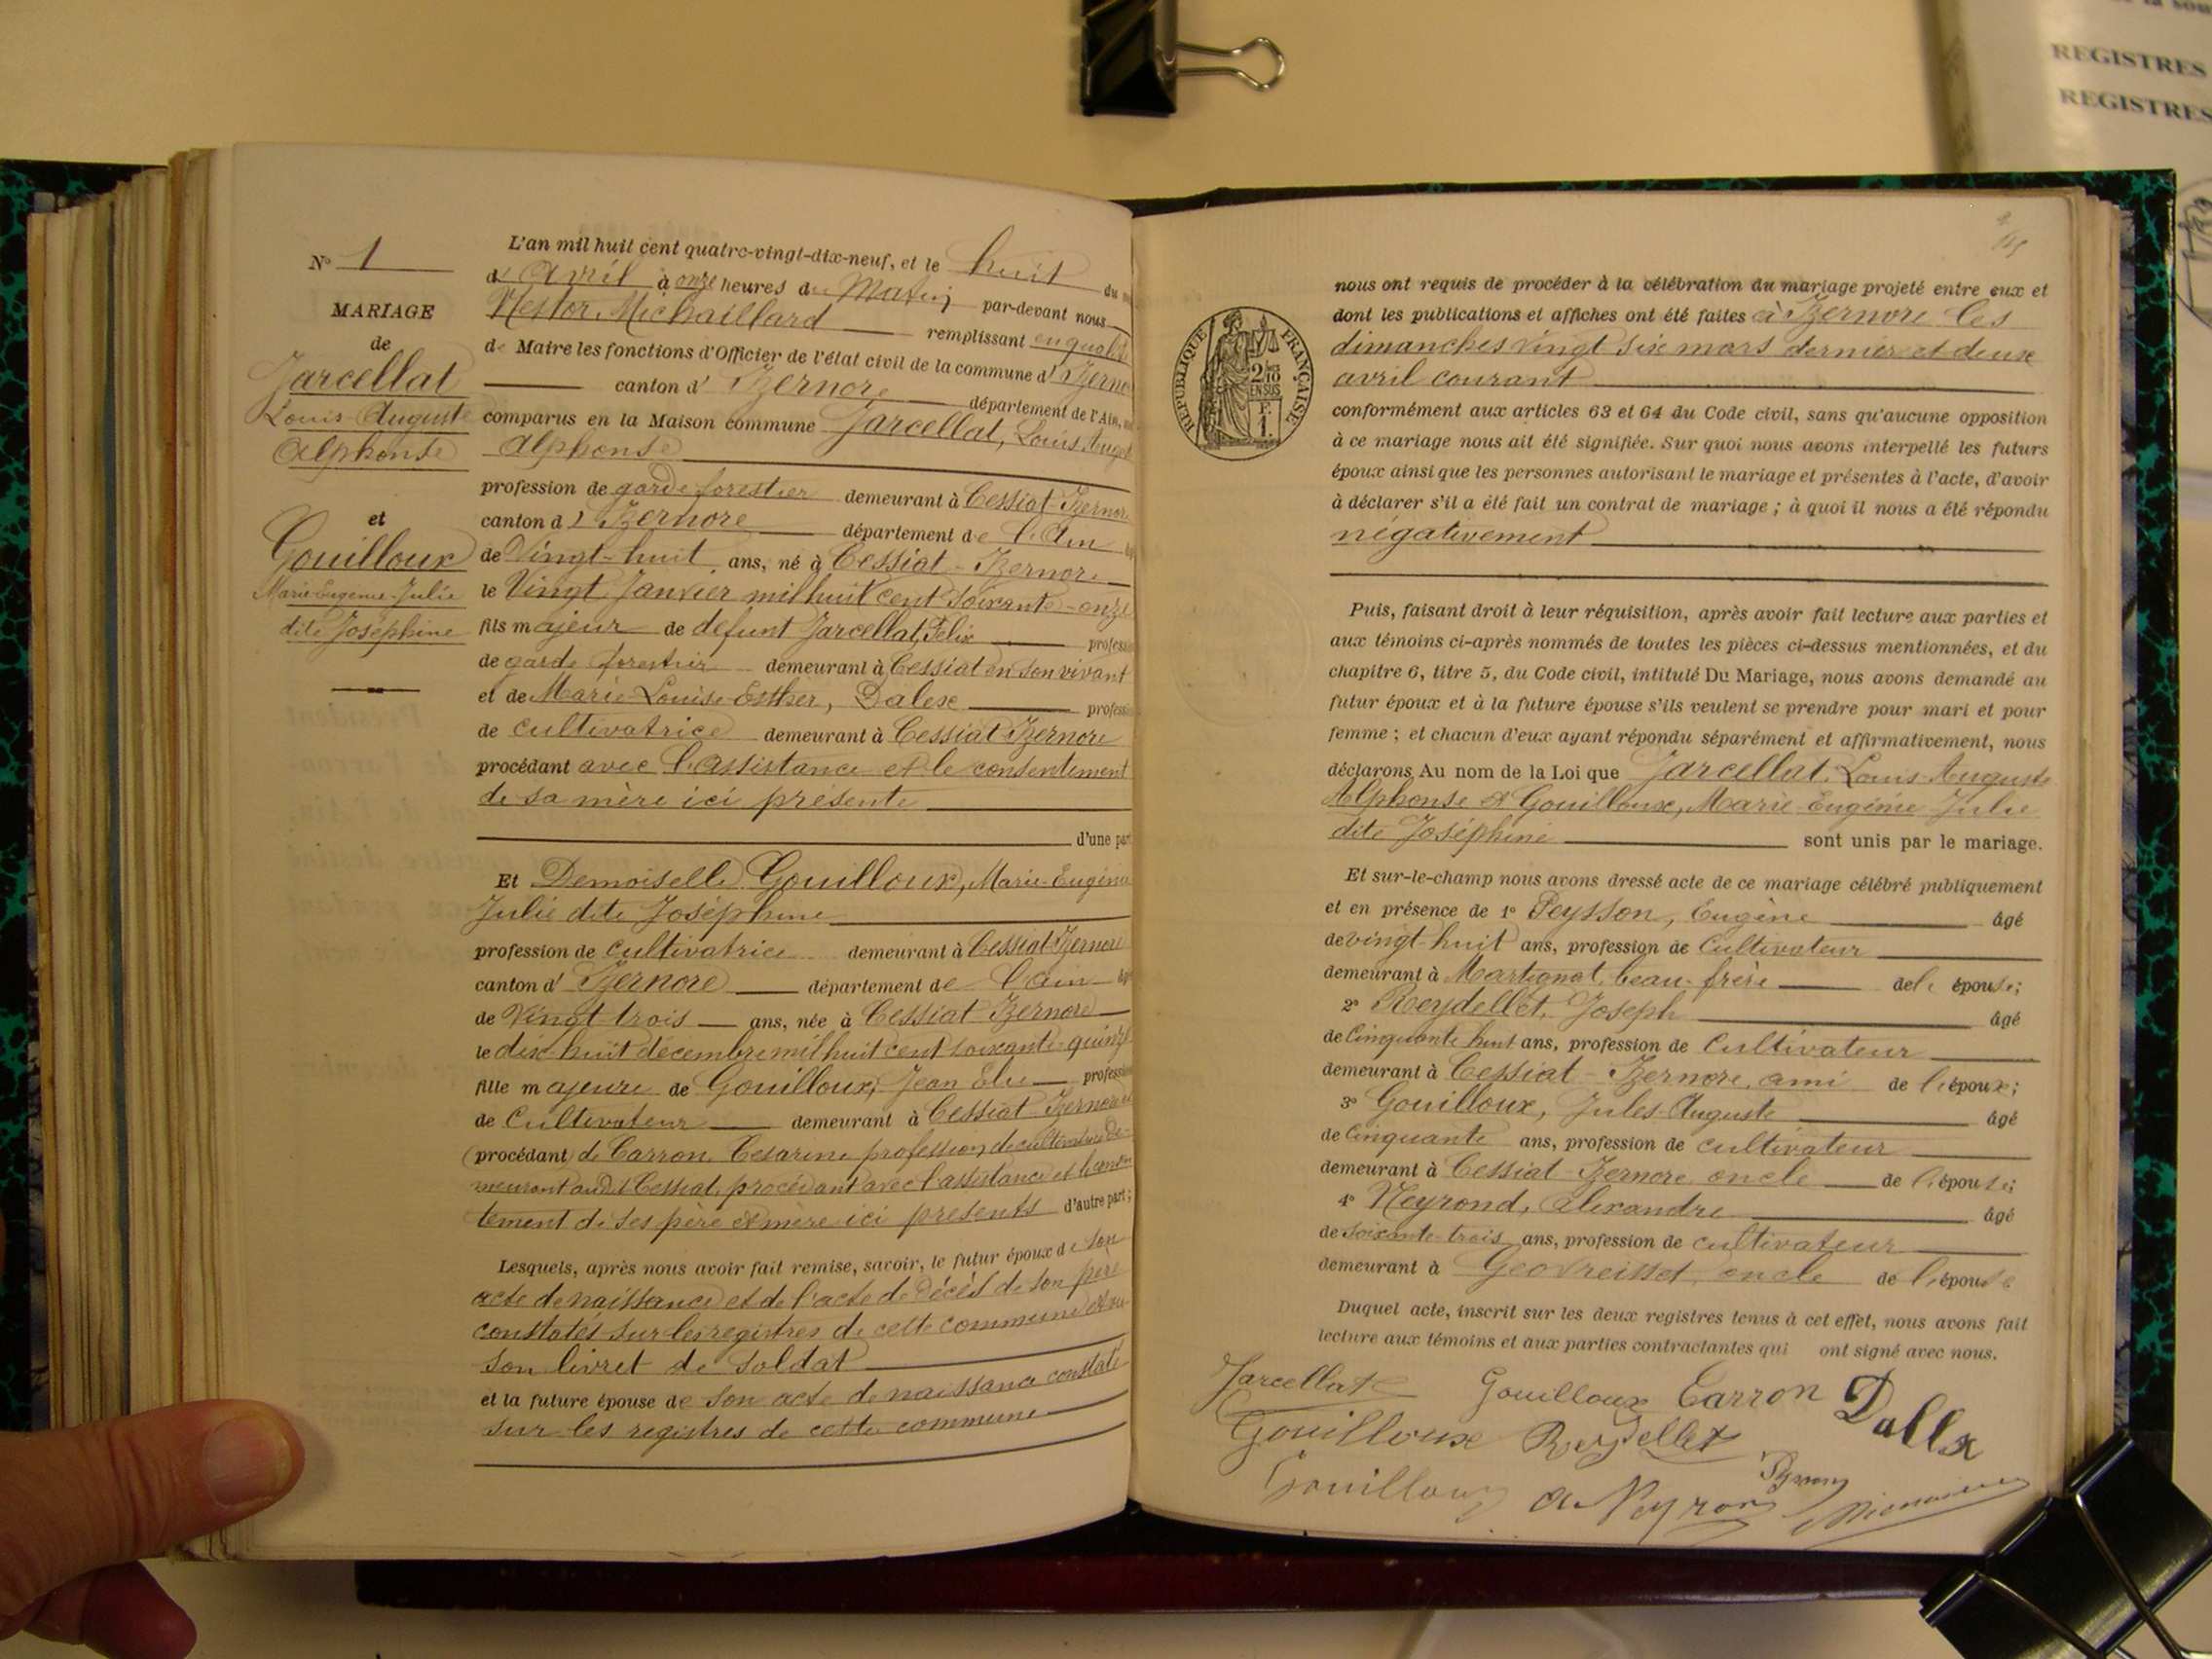 N° 1
MARIAGE
de
Jarcellat
Louis-Auguste
Alphonse
et
Gouilloux
Marie-Eugenie-Julie
dite Joséphine
L'an mil huit cent quatre-vingt-dix-neuf, et le huit du
d' Avril à onze heures du Matin par-devant nous
Nestor Michaillard remplissant en qualité
de Maire les fonctions d'Officier de l'état civil de la commune d'Izernore
canton d' Izernore département de l'Ain,
comparus en la Maison commune Jarcellat, Louis August
Alphonse
profession de garde forestier demeurant à Cessiat-Izernore
canton d' Izernore département de l'Ain
de Vingt-huit ans, né à Cessiat - Izernore
le Vingt Janvier mil huit cent soixante-onze
fils majeur de défunt Jarcellat, Félix profession
de garde forestier demeurant à Cessiat en son vivant
et de Marie-Louise-Esther, Dalex profession
de cultivatrice demeurant à Cessiat-Izernore
procédant avec l'assistance et le consentement
de sa mère ici présente
d'une part
Et Demoiselle Gouilloux, Marie-Eugénie
Julie dite Joséphine
profession de cultivatrice demeurant à Cessiat-Izernore
canton d' Izernore département de l'Ain
de Vingt trois ans, née à Cessiat-Izernore
le dix-huit décembre mil huit cent soixante-quinze
fille majeure de Gouilloux, Jean Elie profession
de Cultivateur demeurant à Cessiat-Izernore
(procédant) de Carron Césarine profession de cultivatrice de-
meurant audit Cessiat, procédant avec l'assistance et le consen
tement de ses père et mère ici présents d'autre part;
Lesquels, après nous avoir fait remise, savoir, le futur époux de son
acte de naissance et de l'acte de décès de son père
constatés sur les registres de cette commune et vu
son livret de soldat
et la future épouse de son acte de naissance constaté
sur les registres de cette commune
nous ont requis de procéder à la célébration du mariage projeté entre eux et
dont les publications et affiches ont été faites à Izernore les
dimanches vingt six mars dernier et deux
avril courant
RÉPUBLIQUE FRANÇAISE
2/10
EN SUS
conformément aux articles 63 et 64 du Code civil, sans qu'aucune opposition
à ce mariage nous ait été signifiée. Sur quoi nous avons interpellé les futurs
époux ainsi que les personnes autorisant le mariage et présentes à l'acte, d'avoir
à déclarer s'il a été fait un contrat de mariage ; à quoi il nous a été répondu
négativement
Puis, faisant droit à leur réquisition, après avoir fait lecture aux parties et
aux témoins ci-après nommés de toutes les pièces ci-dessus mentionnées, et du
chapitre 6, titre 5, du Code civil, intitulé Du Mariage, nous avons demandé au
futur époux et à la future épouse s'ils veulent se prendre pour mari et pour
femme ; et chacun d'eux ayant répondu séparément et affirmativement, nous
déclarons Au nom de la Loi que Jarcellat Louis-Auguste
Alphonse et Gouilloux, Marie-Eugénie Julie
dite Joséphine sont unis par le mariage.
Et sur-le-champ nous avons dressé acte de ce mariage célébré publiquement
et en présence de 1° Peysson, Eugène âgé
de vingt-huit ans, profession de Cultivateur
demeurant à Martignat, beau-frère de l'épouse;
2° Reydellet, Joseph âgé
de Cinquante huit ans, profession de Cultivateur
demeurant à Cessiat-Izernore, ami de l'époux;
3° Gouilloux, Jules-Auguste âgé
de Cinquante ans, profession de cultivateur
demeurant à Cessiat-Izernore oncle de l'épouse;
4° Neyrond, Alexandre âgé
de soixante-trois ans, profession de cultivateur
demeurant à Geovreisset, oncle de l'épouse
Duquel acte, inscrit sur les deux registres tenus à cet effet, nous avons fait
lecture aux témoins et aux parties contractantes qui ont signé avec nous.
Jarcellat Gouilloux Carron Dallx
Gouilloux Reydellet
Gouilloux A Neyron
REGISTRES
REGISTRES